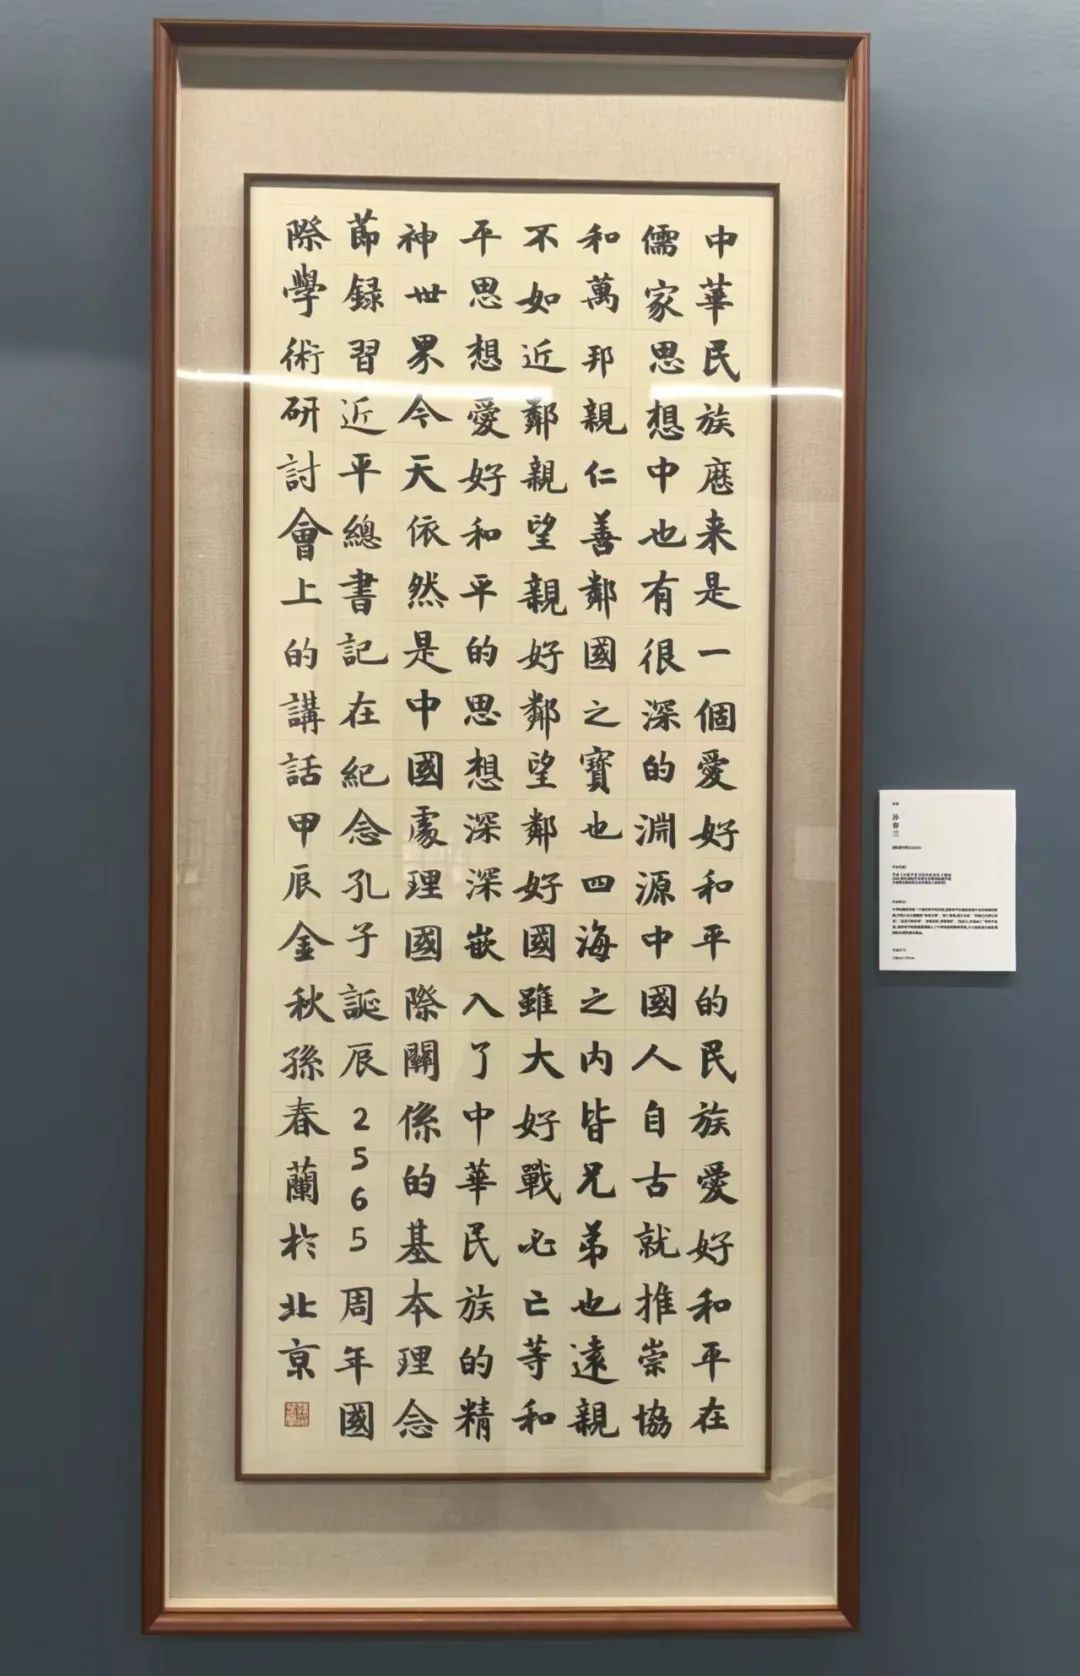 中華民族歷来是一個愛好和平的民族愛好和平在
儒家思想中也有很深的淵源中國人自古就推崇協
和萬邦親仁善鄰國之寶也四海之内皆兄弟也遠親
不如近鄰親望親好鄰望鄰好國雖大好戰必亡等和
平思想愛好和平的思想深深嵌入了中華民族的精
神世界今天依然是中國處理國際關係的基本理念
節録習近平總書記在紀念孔子誕辰2565周年國
際學術研討會上的講話甲辰金秋孫春蘭於北京
孙春兰